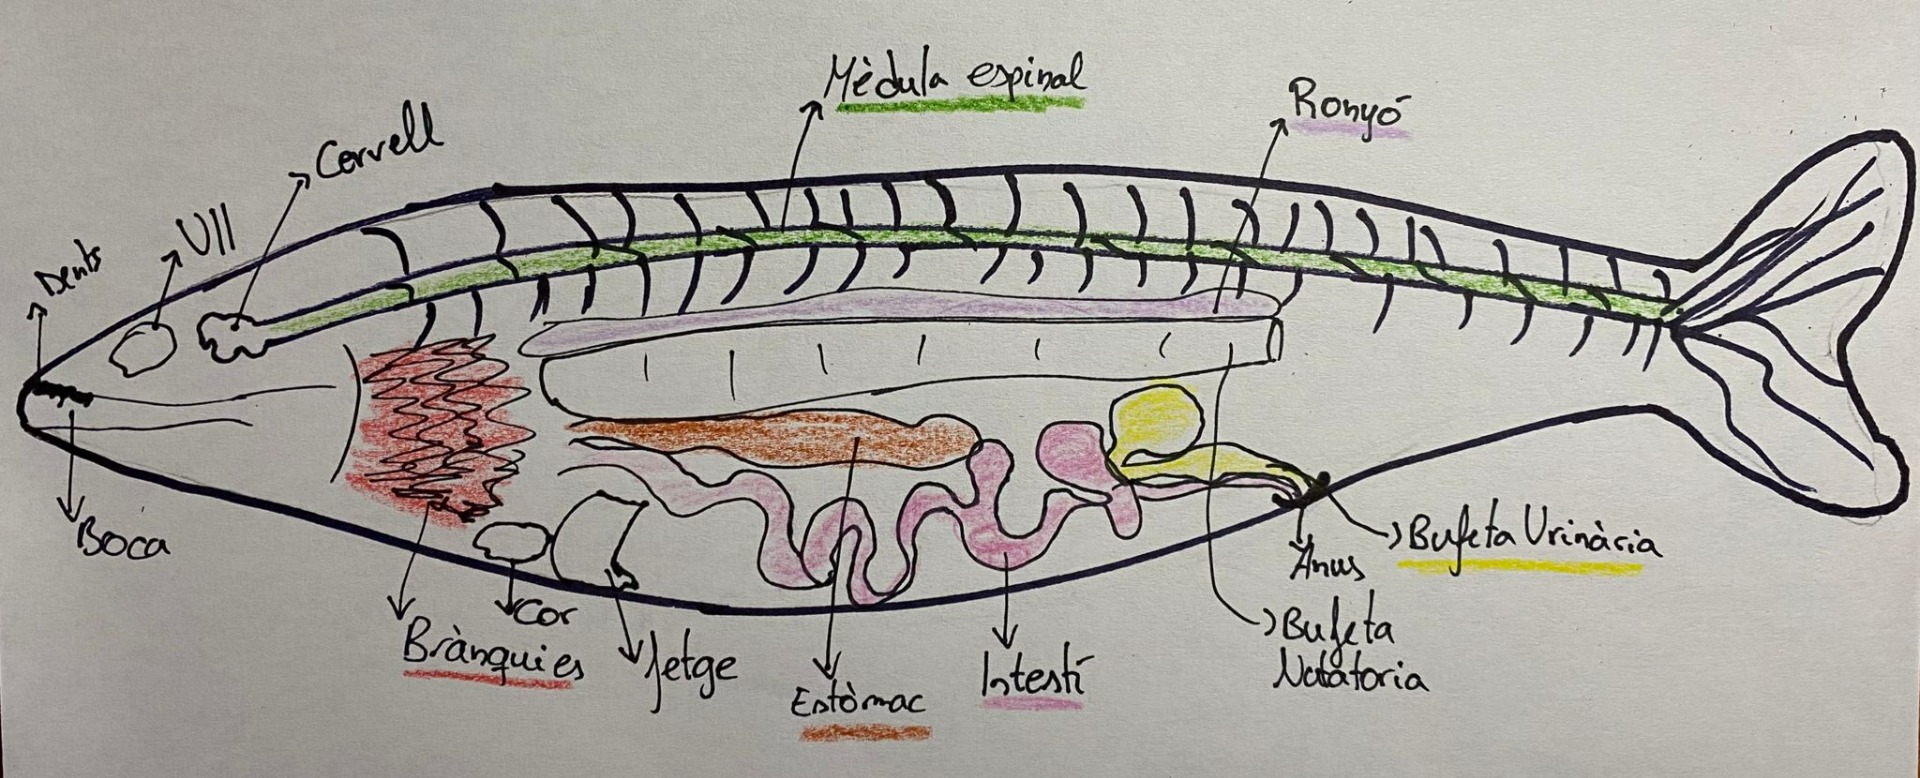 Mèdula espinal
Ronyó
Cervell
Ull
Dents
Boca
Brànquies
Cor
fetge
Estòmac
Intestí
Anus
Bufeta Urinària
Bufeta
Natatoria